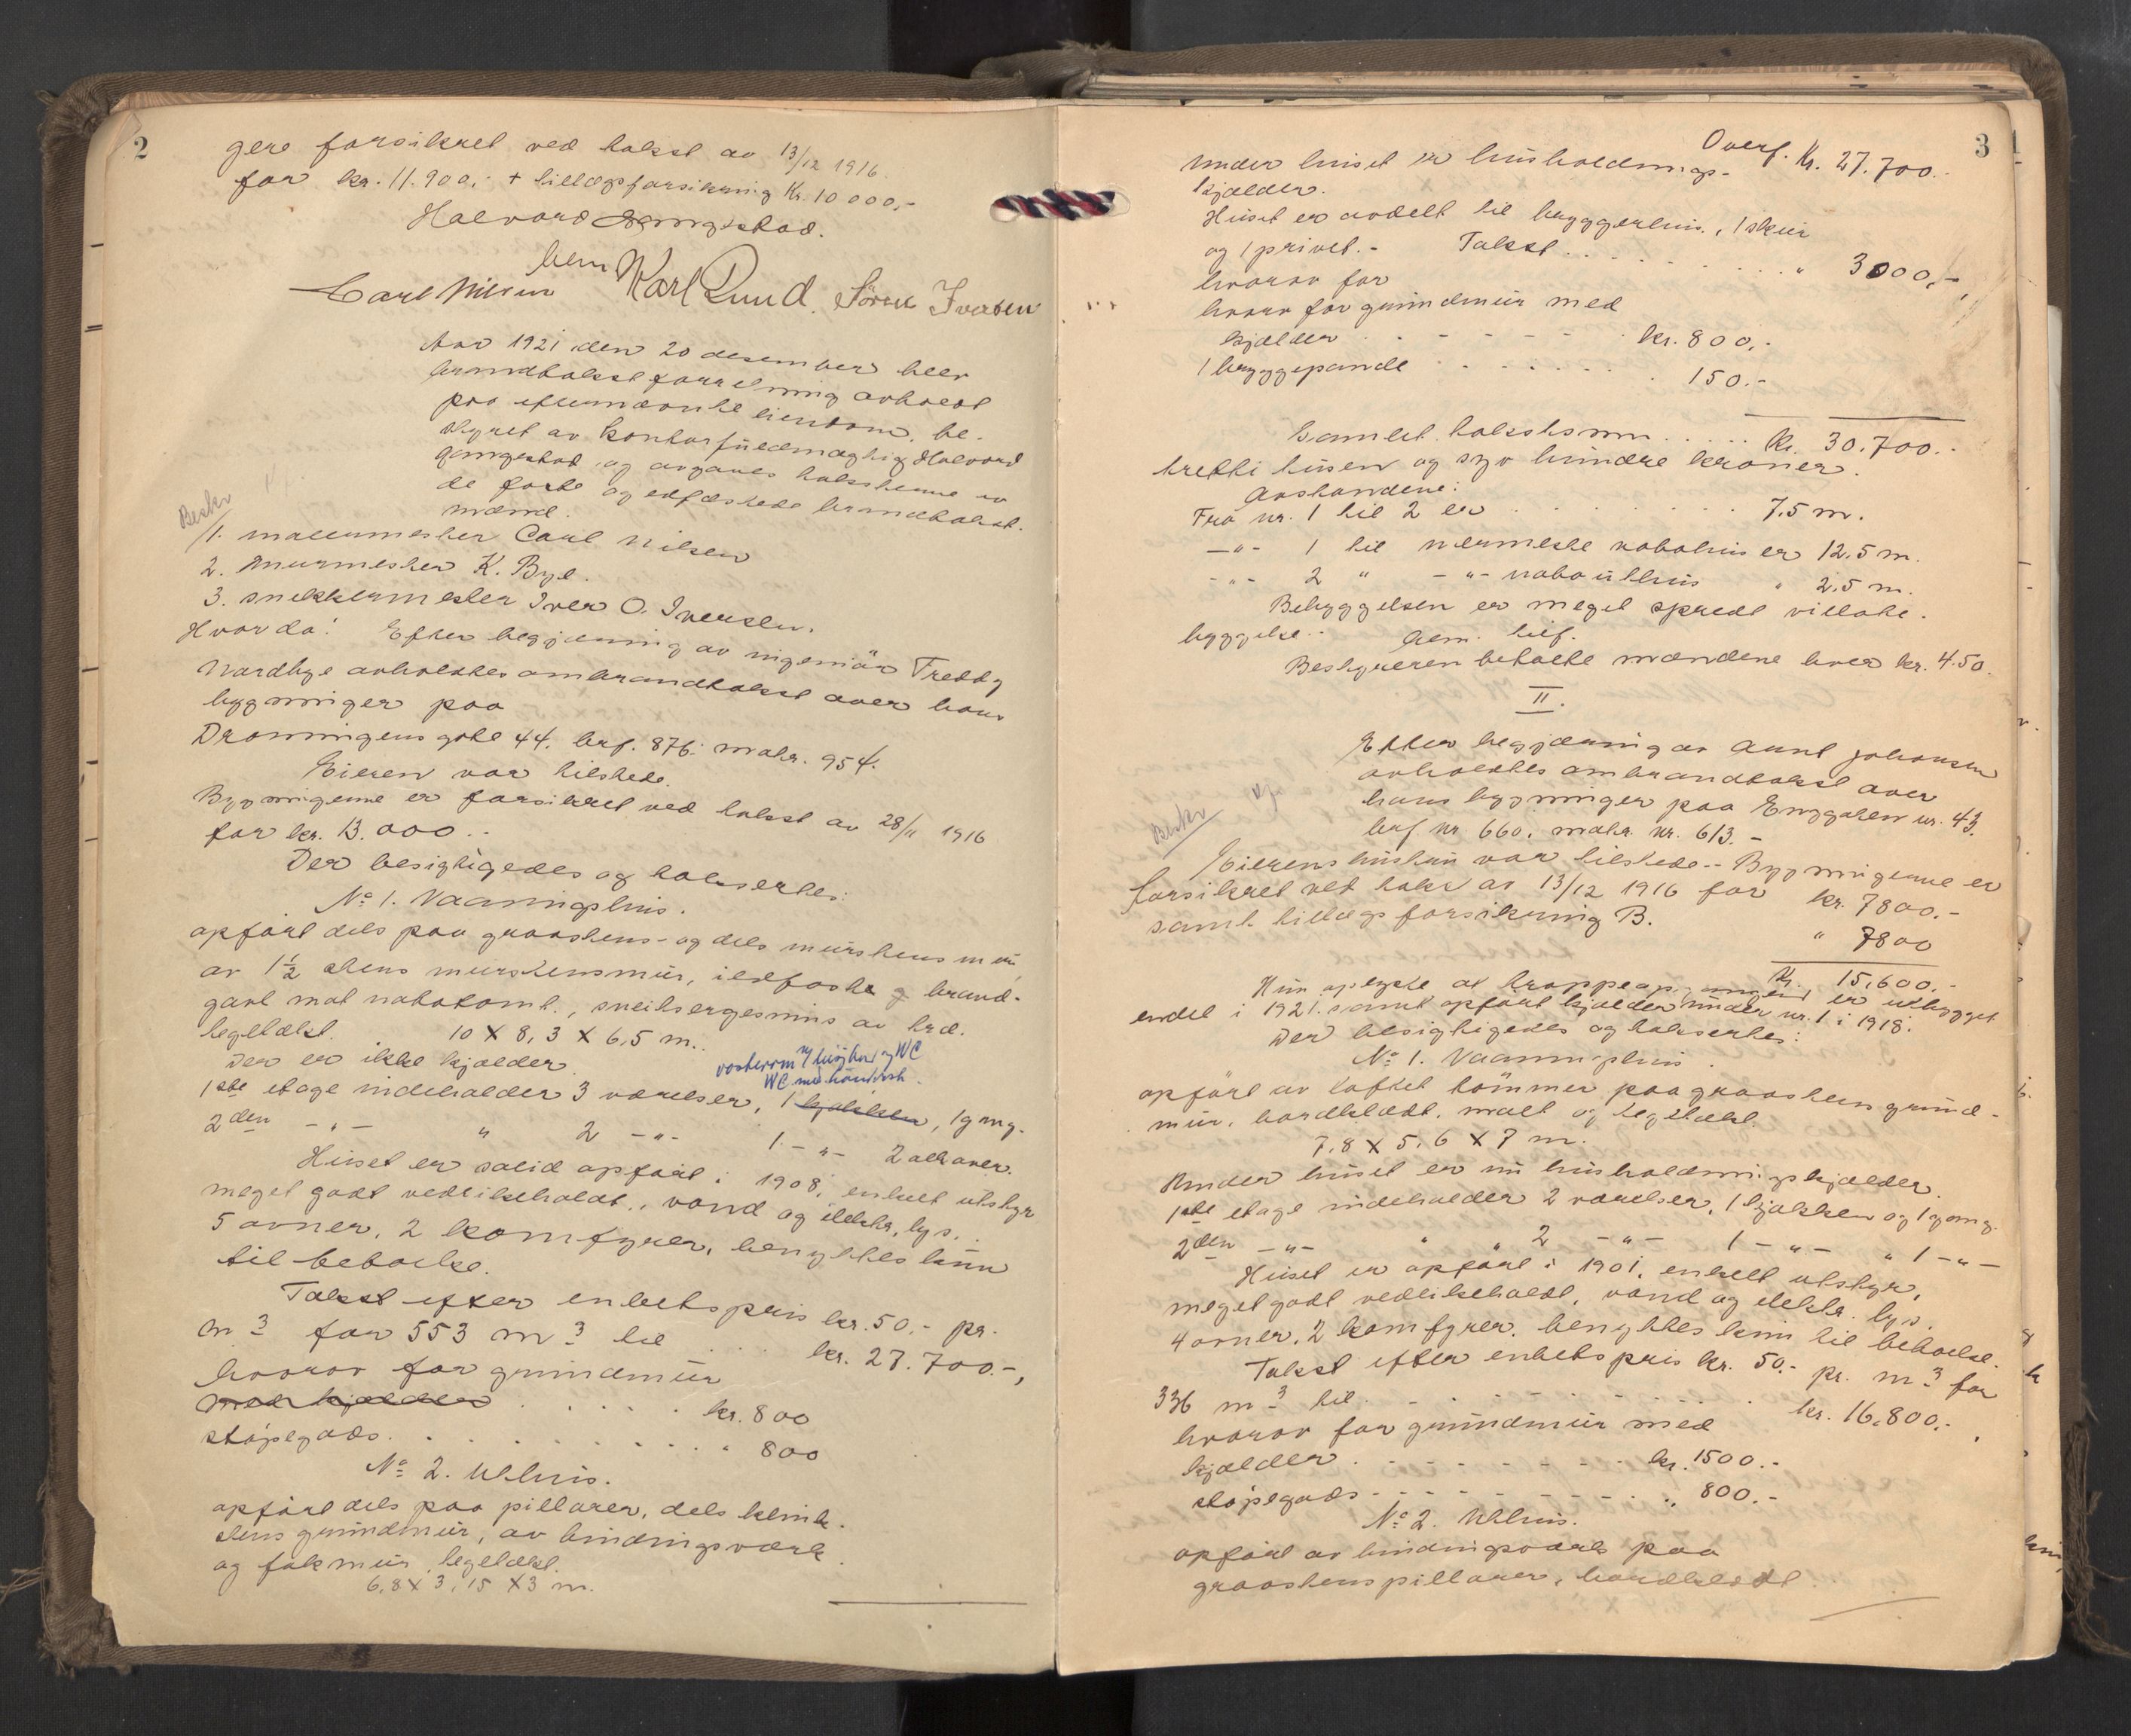 2
gere forsikret ved takst av 13/12 1916
for kr. 11.900,- + tillægsforsikring Kr. 10 000,-
Halvard Gangestad.
Carl Nilsen Karl Ruud. Sören Iversen
Aar 1921 den 20 desember blev
brandtakstforretning avholdt
paa efternævnte eiendom, be-
styret av kontorfuldmægtig Halvard
Gangestad, og avgaves takstene av
de faste og edfæstede brandtakst-
mænd.
Beskr
1. malermester Carl Nilsen
2. Murmester K. Bye.
3. snekkermester Iver O. Iversen.
Hvorda! Efter begjæring av ingeniör Freddy
Nardbye avholdtes ombrandtakst over hans
bygninger paa
Dronningens gate 44. brf. 876. matr. 954.
Eieren var tilstede.
Bygningene er forsikret ved takst av 28/11 1916
for kr. 13.000.-
Der besigtigedes og taksertes:
No 1. Vaaningshus.
opfört dels paa graastens- og dels murstens mur,
av 1½ stens murstensmur, ildfaste g brand-
gavl mot nabotomt., sveitsergesims av træ.
tegltækt. 10 X 8,3 X 6,5 m.
Der er ikke kjælder.
WC
1ste etage indeholder 3 værelser, 1 kjökken, 1 gang.
2den -"- " 2 -"- 1 -"- 2 alkover.
Huset er solid opfört i 1908, enkelt utstyr
meget godt vedlikeholdt., vand og elektr. lys.
5 ovner, 2 komfyrer, benyttes kun
til beboelse.
Takst efter enhetspris kr. 50.- pr.
m3 for 553 m3 til . . . kr. 27.700.-,
hvorav for grundmur
med kjælder . . . . . kr. 800
stöpegods. . . . . . . . . . " 800
No 2. Uthus.
opfört dels paa pillarer, dels klink-
stens grundmur, av bindingsverk
og fakmur, tegltækt.
6,8 X 3,15 X 3 m.
3
Overf. Kr. 27.700.-
Under huset er husholdnings-
kjælder.
Huset er avdelt til bryggerhus, 1 skur
og 1 privet.- Takst . . . . . . . . . . " 3000,-,
hvorav for
hvorav for grundmur med
kjælder . . - - - - - . kr. 800,-
1 bryggepande . . . . . . . . 150.-
Samlet takstsum . . . . . Kr. 30.700.-
tretti tusen og syv hundre kroner.
Avstandene:
Fra nr. 1 til 2 er . . . . . . . . . 7.5 m.
-"- 1 til nærmeste nabohus er 12.5 m.
-"- 2 " -"- nabouthus " 2.5 m.
Bebyggelsen er meget spredt villabe-
byggelse.-
Bestyreren betalte mændene hver kr. 4.50.
II.
Efter begjæring av Aunt Johansen
avholdtes ombrandtakst over
hans bygninger paa Enggaten nr. 43.
brf nr 660. matr. nr. 613.-
Beskr
Eierens hustru var tilstede.- Bygningene er
forsikret ved takst av 13/12 1916 for kr. 7800.-
samt tillægsforsikring B. " 7800
Kr. 15.600.-
Hun oplyste at trappeopgangen er utbygget
endel i 1921. samt opfört kjælder under nr. 1 i 1918.
Der besigtigedes og taksertes:
No 1. Vaaningshus.
opfört av laftet tömmer paa graastens grund-
mur, bordklædt, malt og tegltækt.
7,8 X 5,6 X 7 m.
Under huset er nu husholdningskjælder.
1ste etage indeholder 2 værelser, 1 kjökken og 1 gang.
2den -"- " " 2 -"- 1 -"- " 1 -"-
Huset er opfört i 1901, enkelt utstyr,
meget godt vedlikeholdt, vand og elektr. lys.
4 ovner, 2 komfyrer. benyttes kun til beboelse.
Takst efter enhetspris kr. 50.- pr. m3 for
336 m3 til . . . . . . . . . . . kr. 16.800.-,
hvorav for grundmur med
kjælder . . - - - - - - - kr. 1500.-
stöpegods - - - - - - - - . " 800.-
No 2. Uthus.
opfört av bindingsverk paa
graastenspillarer, bordklædt